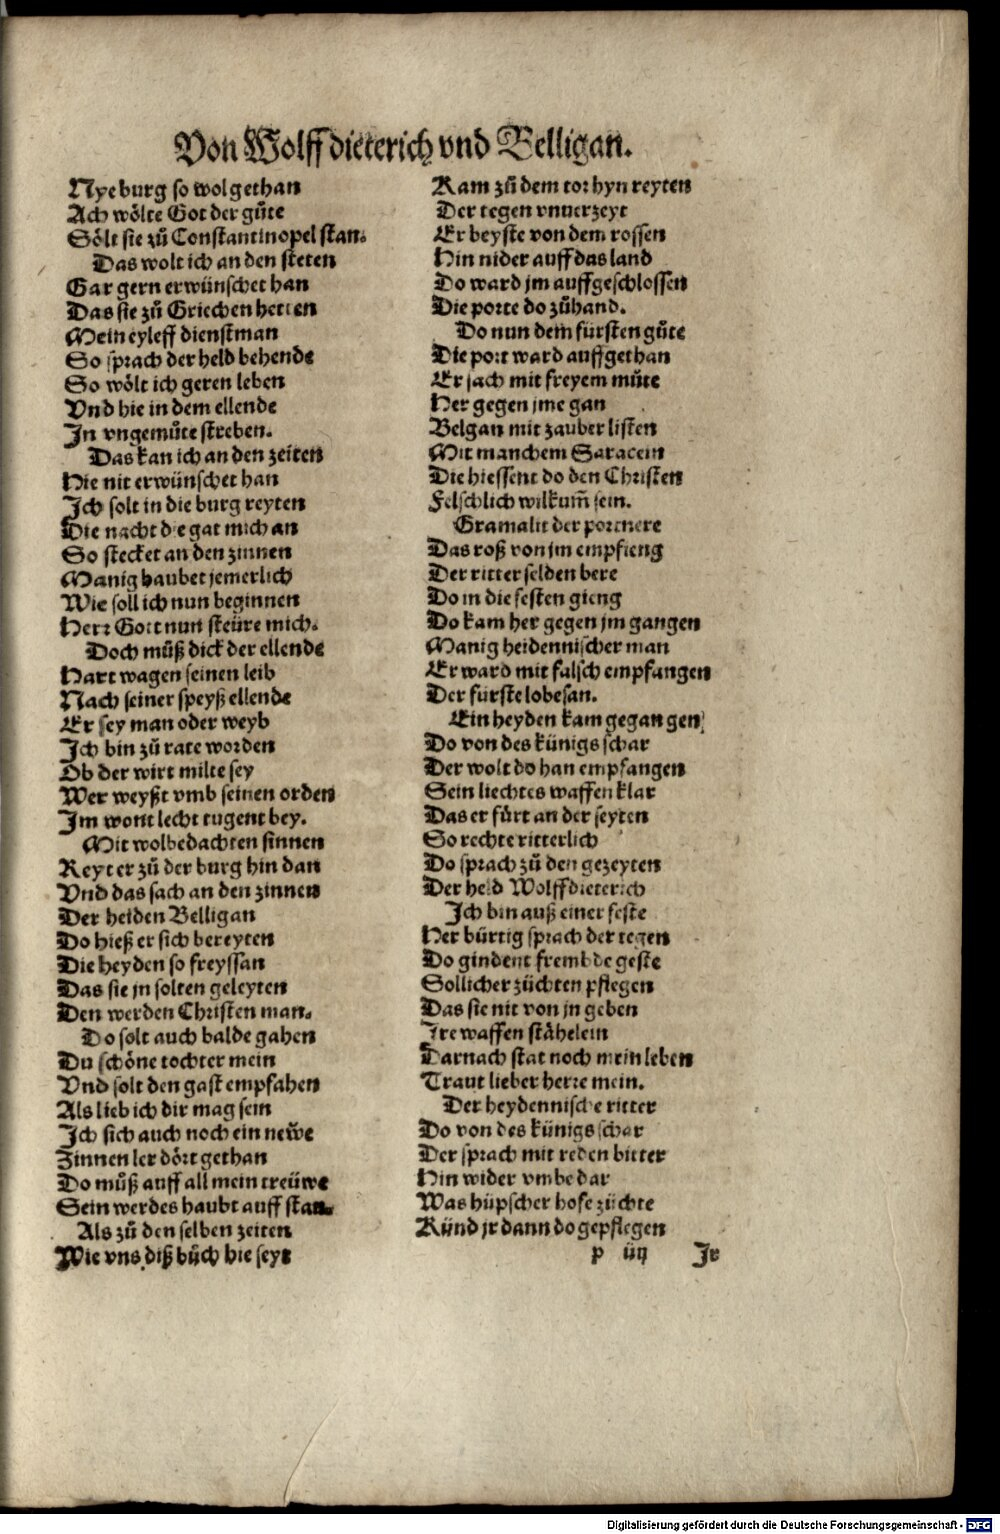 Von Wolffdieterich vnd Belligan.
Nye burg so wol gethan
Ach wölte Got der gůte
Sölt sie zů Constantinopel stan.
Das wolt ich an den steten
Gar gern erwünschet han
Das sie zů Griechen hetten
Mein eyleff dienstman
So sprach der held behende
So wölt ich geren leben
Vnd hie in dem ellende
In vngemůte streben.
Das kan ich an den zeiten
Hie nit erwünschet han
Ich solt in die burg reyten
Die nacht die gat mich an
So stecket an den zinnen
Manig haubet jemerlich
Wie soll ich nun beginnen
Herr Gott nun steüre mich.
Doch můß dick der ellende
Hart wagen seinen leib
Nach seiner speyß ellende
Er sey man oder weyb
Ich bin zů rate worden
Ob der wirt milte sey
Wer weyßt vmb seinen orden
Im wont lecht tugent bey.
Mit wolbedachten sinnen
Reyt er zů der burg hin dan
Vnd das sach an den zinnen
Der heiden Belligan
Do hieß er sich bereyten
Die heyden so freyssan
Das sie jn solten geleyten
Den werden Christen man.
Do solt auch balde gahen
Du schöne tochter mein
Vnd solt den gast empfahen
Als lieb ich dir mag sein
Ich sich auch noch ein neẅe
Zinnen ler dört gethan
Do můß auff all mein treüwe
Sein werdes haubt auff stan.
Als zů den selben zeiten
Wie vns diß bůch hie seyt
Kam zů dem tor hyn reyten
Der tegen vnuerzeyt
Er beyste von dem rossen
Hin nider auff das land
Do ward jm auffgeschlossen
Die porte do zůhand.
Do nun dem fürsten gůte
Die port ward auffgethan
Er sach mit freyem můte
Her gegen jme gan
Belgan mit zauber listen
Mit manchem Saracein
Die hiessent do den Christen
Felschlich wilkum̃ sein.
Gramalit der portnere
Das roß von jm empfieng
Der ritter selden bere
Do in die festen gieng
Do kam her gegen jm gangen
Manig heidennischer man
Er ward mit falsch empfangen
Der fürste lobesan.
Ein heyden kam gegangen
Do von des künigs schar
Der wolt do han empfangen
Sein liechtes waffen klar
Das er fürt an der seyten
So rechte ritterlich
Do sprach zů den gezeyten
Der held Wolffdieterich
Ich bin auß einer feste
Her bürtig sprach der tegen
Do gindent frembde geste
Sollicher züchten pflegen
Das sie nit von jn geben
Ire waffen stähelein
Darnach stat noch mein leben
Traut lieber herre mein.
Der heydennische ritter
Do von des künigs schar
Der sprach mit reden bitter
Hin wider vmbe dar
Was hüpscher hofe züchte
Künd jr dann do gepflegen
p iij Ir
Digitalisierung gefördert durch die Deutsche Forschungsgemeinschaft - DFG